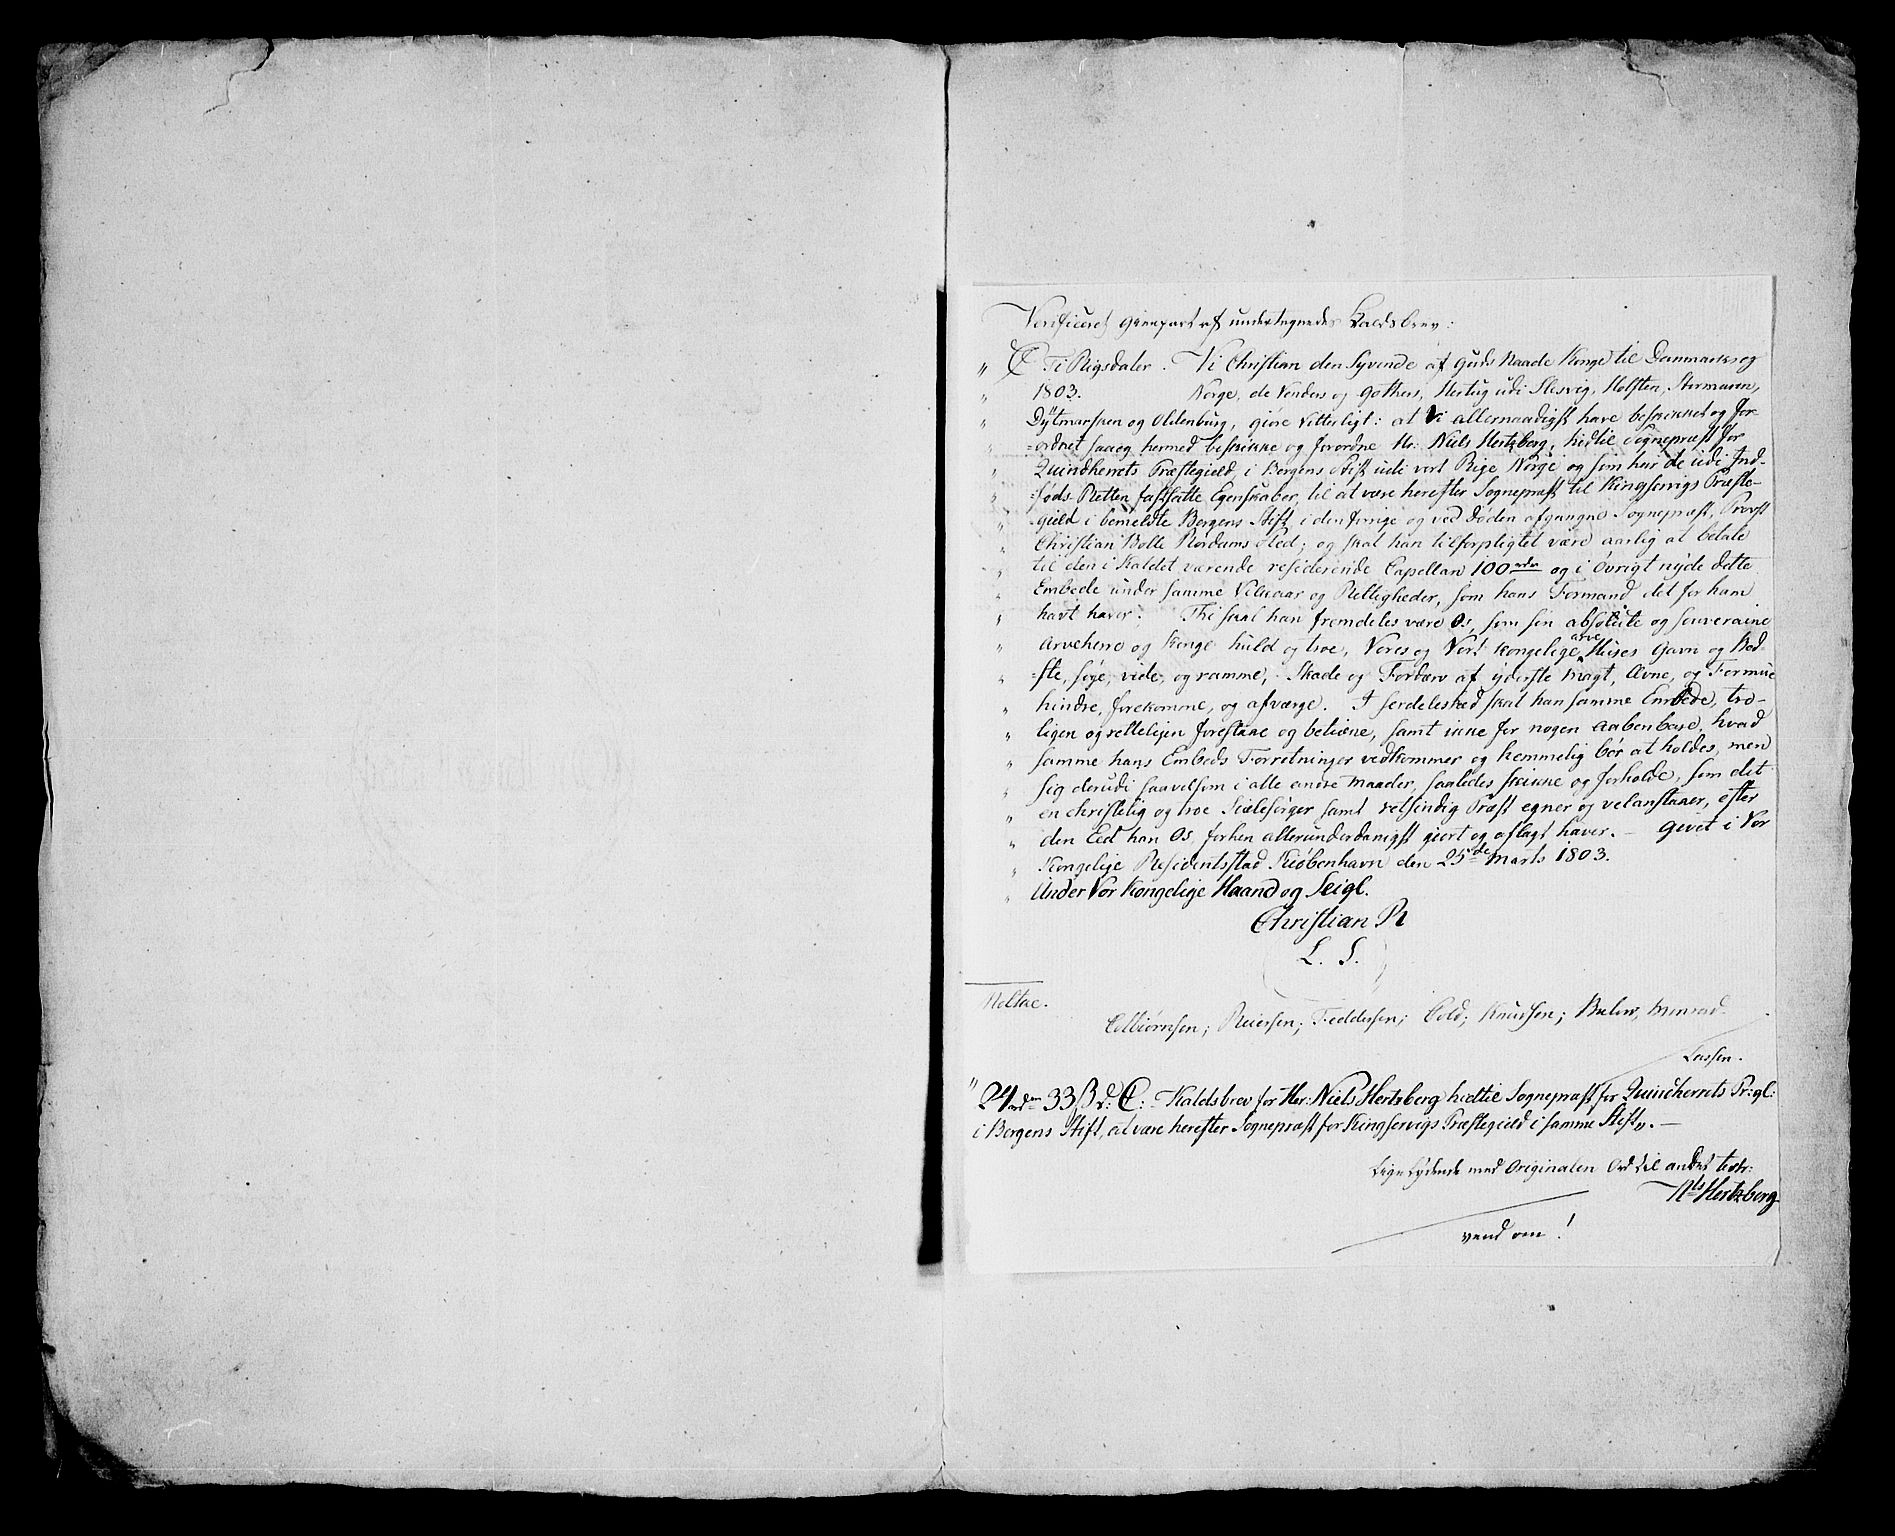 Verificeret Gienpart af undertegnedes Kaldsbrev:
" C Ti Rigsdaler. Vi Christian den Syvende af Guds Naade Konge til Danmark og
" 1803. Norge, de Venders og Gothers, Hertug udi Slesvig, Holsten, Stormarn,
" Dytmarsken og Oldenburg, giøre Vitterligt: at Vi allernaadigst have beskikket og for
" =ordnet saa og hermed beskikke og forordne Hr: Niels Hertzberg, hidtil Sognepræst for
" Quindherrets Præstegield, i Bergens Stift udi vort Rige Norge og som har de udi Ind-
" =føds Retten fastsatte Egenskaber, til at være herefter Sognepræst til Kingservigs Præste-
" gield i bemeldte Bergens Stift, i den forrige og ved Døden afgangne Sognepræst, Provst
" Christian Bolle Rørdams Sted; og skal han tilforpligtet være aarlig at betale
" til den i Kaldet værende residerende Capellan 100 rdr og i Øvrigt nyde dette
" Embede under samme Vilkaar og Rettigheder, som hans Formand det for ham
" havt haver. Thi skal han fremdeles være Os, som sin absolute og souveraine
" Arveherre og Konge huld og troe, Vores og Vort Kongelige arve Huses Gavn og Bed-
" =ste, søge, vide, og ramme, Skade og Fordærv af yderste Magt, Ævne, og Formue
" hindre, forekomme, og afværge. I særdeleshed skal han samme Embede, tro-
" ligen og rettelijen forestaae og betiene, samt ikke for nogen aabenbare, hvad
" samme hans Embeds Forretninger vedkommer og hemmelig bør at holdes, men
" sig derudi saavelsom i alle andre Maader, saaledes skikke og forholde, som det
" en christelig og troe Siælesørger samt retsindig Præst egner og velanstaaer, efter
" den Eed han Os forhen allerunderdanigst giort og aflagt haver. – Givet i Vor
" Kongelige Residentsstad Kiøbenhavn den 25de Marts 1803.
" Under Vor Kongelige Haand og Seigl.
Christian R
L. S.
Moltae.
Colbiørnsen; Reiersen; Feddersen; Cold; Knudsen; Bulow, Monrad.
Lassen.
" 24 rdr 33 ß d: C: Kaldsbrev for Her: Niels Hertzberg hidtil Sognepræst for Quindherrets Pr:gl:
i Bergens Stift, at være herefter Sognepræst for Kingservigs Præstegield i samme Stift". –
Lige Lydende med Originalen Ord til andet testr:
Nls Hertzberg
vend om!